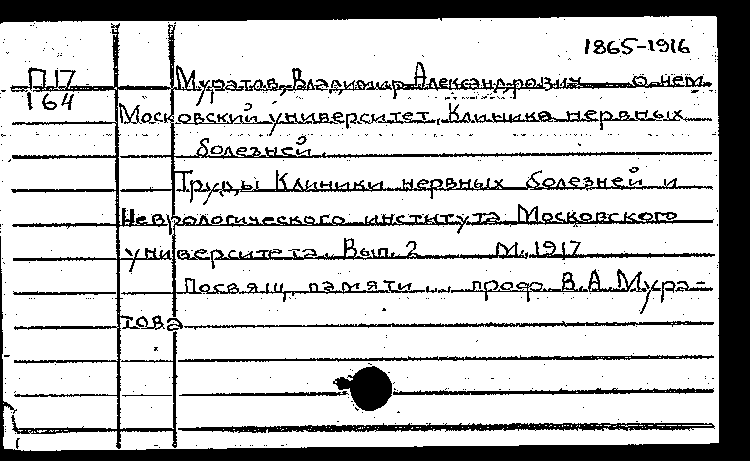 1865-1916
П17 Муратов, Владимир Александрович о нем
164
Московский университет. Клиника нервных
болезней.
Труды Клиники нервных болезней и
Неврологического института Московского
университета. Вып. 2 М., 1917
Посвящ. памяти... проф. В.А. Мура-
това